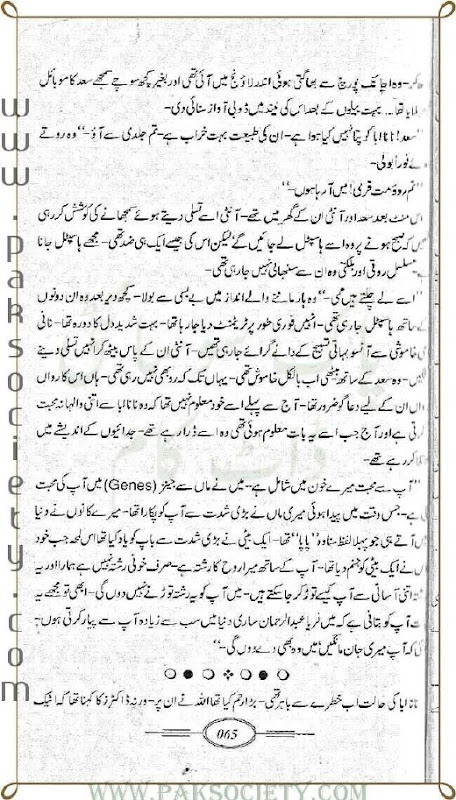 کر۔ وہ اچانک پورچ سے بھاگتی ہوئی اندر لاؤنج میں آئی تھی اور بغیر کچھ سوچے سمجھے سعد کا موبائل
ملایا تھا... بہت بیلوں کے بعد اس کی نیند میں ڈوبی آواز سنائی دی۔
”سعد! نانا ابا کو پتا نہیں کیا ہوا ہے۔ ان کی طبیعت بہت خراب ہے۔ تم جلدی سے آؤ۔“ وہ روتے
فوراً بولی۔
”تم روؤ مت فری! میں آ رہا ہوں۔“
دس منٹ بعد سعد اور آنٹی ان کے گھر میں تھے۔ آنٹی اسے تسلی دیتے ہوئے سمجھانے کی کوشش کر رہی
کہ صبح ہونے پر وہ اسے ہاسپٹل لے جائیں گے لیکن اس کی جیسے ایک ہی ضد تھی۔ مجھے ہاسپٹل جانا
مسلسل روتی اور بلکتی وہ ان سے سنبھالی نہیں جا رہی تھی۔
”اسے لے چلتے ہیں ممی۔“ وہ ہار ماننے والے انداز میں بے بسی سے بولا۔ کچھ دیر بعد وہ ان دونوں
کے ساتھ ہاسپٹل جا رہی تھی۔ انہیں فوری طور پر ٹریٹمنٹ دیا جا رہا تھا۔ بہت شدید دل کا دورہ تھا۔ نانی
خاموشی سے آنسو بہاتی تسبیح کے دانے گرائے جا رہی تھیں۔ آنٹی ان کے پاس بیٹھ کر انہیں تسلی دینے
وہ سعد کے ساتھ بیٹھی اب بالکل خاموش تھی۔ یہاں تک کہ رو بھی نہیں رہی تھی۔ ہاں اس کا رواں
رواں ان کے لیے دعا گو ضرور تھا۔ آج سے پہلے اسے خود معلوم نہیں تھا کہ وہ نانا ابا سے اتنی والہانہ محبت
کرتی ہے اور آج جب اسے یہ بات معلوم ہوئی تھی وہ اسے ڈرا رہے تھے۔ جدائیوں کے اندیشے میں
کر رہے تھے۔
”آپ سے محبت میرے خون میں شامل ہے۔ میں نے ماں سے جینز (Genes) میں آپ کی محبت
ہے۔ جس وقت میں پیدا ہوئی میری ماں نے بڑی شدت سے آپ کو پکارا تھا۔ میرے کانوں نے دنیا
میں آتے ہی جو پہلا لفظ سنا وہ ”پاپا“ تھا۔ ایک بیٹی نے بڑی شدت سے باپ کو یاد کیا تھا اس لمحہ جب خود
اس نے ایک بیٹی کو جنم دیا تھا۔ آپ کے ساتھ میرا روح کا رشتہ ہے۔ صرف خونی رشتہ نہیں ہے ہمارا اور یہ
اتنی آسانی سے آپ کیسے توڑ کر جا سکتے ہیں۔ میں آپ کو یہ رشتہ توڑنے نہیں دوں گی۔ ابھی تو مجھے یہ
آپ کو بتانی ہے کہ میں ثریا عبدالرحمان ساری دنیا میں سب سے زیادہ آپ سے پیار کرتی ہوں۔
کہ آپ میری جان مانگیں میں وہ بھی دے دوں گی۔“
نانا ابا کی حالت اب خطرے سے باہر تھی۔ بڑا رحم کیا تھا اللہ نے ان پر۔ ورنہ ڈاکٹرز کا کہنا تھا کہ اٹیک
065
www.paksociety.com
WWW.PAKSOCIETY.COM